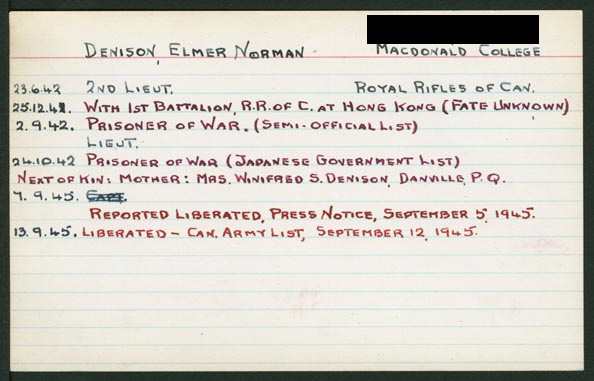 DENISON, ELMER NORMAN MACDONALD COLLEGE
23.6.42 2ND LIEUT. ROYAL RIFLES OF CAN.
25.12.41. WITH 1ST BATTALION, R.R. OF C. AT HONG KONG (FATE UNKNOWN)
2.9.42. PRISONER OF WAR. (SEMI-OFFICIAL LIST)
LIEUT.
24.10.42 PRISONER OF WAR (JAPANESE GOVERNMENT LIST)
NEXT OF KIN: MOTHER: MRS. WINIFRED S. DENISON, DANVILLE, P.Q.
7.9.45. CAPT.
REPORTED LIBERATED, PRESS NOTICE, SEPTEMBER 5, 1945.
13.9.45. LIBERATED - CAN. ARMY LIST, SEPTEMBER 12, 1945.